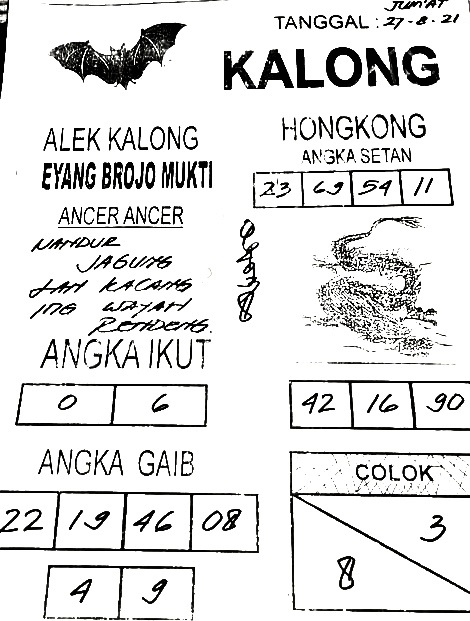 JUM'AT
TANGGAL : 27-8-21
KALONG
ALEK KALONG
EYANG BROJO MUKTI
ANCER ANCER
NANDUR
JAGUNG
LAN KACANG
ING WAYAH
RENDENG.
ANGKA IKUT
0 6
ANGKA GAIB
22 19 46 08
4 9
HONGKONG
ANGKA SETAN
23 69 54 11
42 16 90
COLOK
3
8